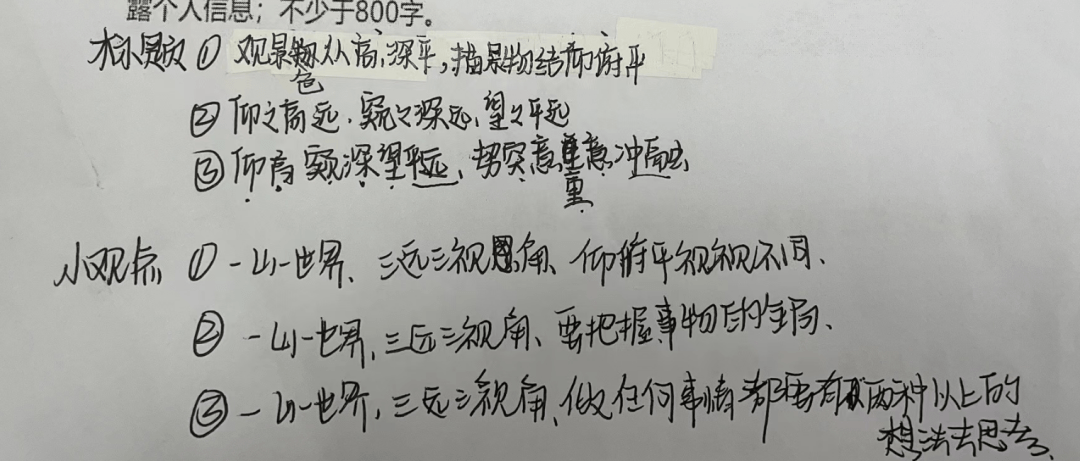 露个人信息；不少于800字。
标题 ① 观景物从高,深平,描景物结仰俯平
色
② 仰之高远、窥之深远、望之平远
③ 仰高窥深望平远、势突意重意冲融
重
小观点 ① 一山一世界、三远三视角、仰俯平视视不同、
② 一山一世界,三远三视角、要把握事物的全局、
③ 一山一世界,三远三视角、做任何事情都要有两种以上的
想法去思考、